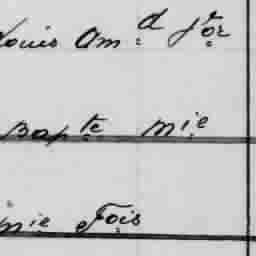 Louis Amd Jor
Bapte Mie
mie Fois